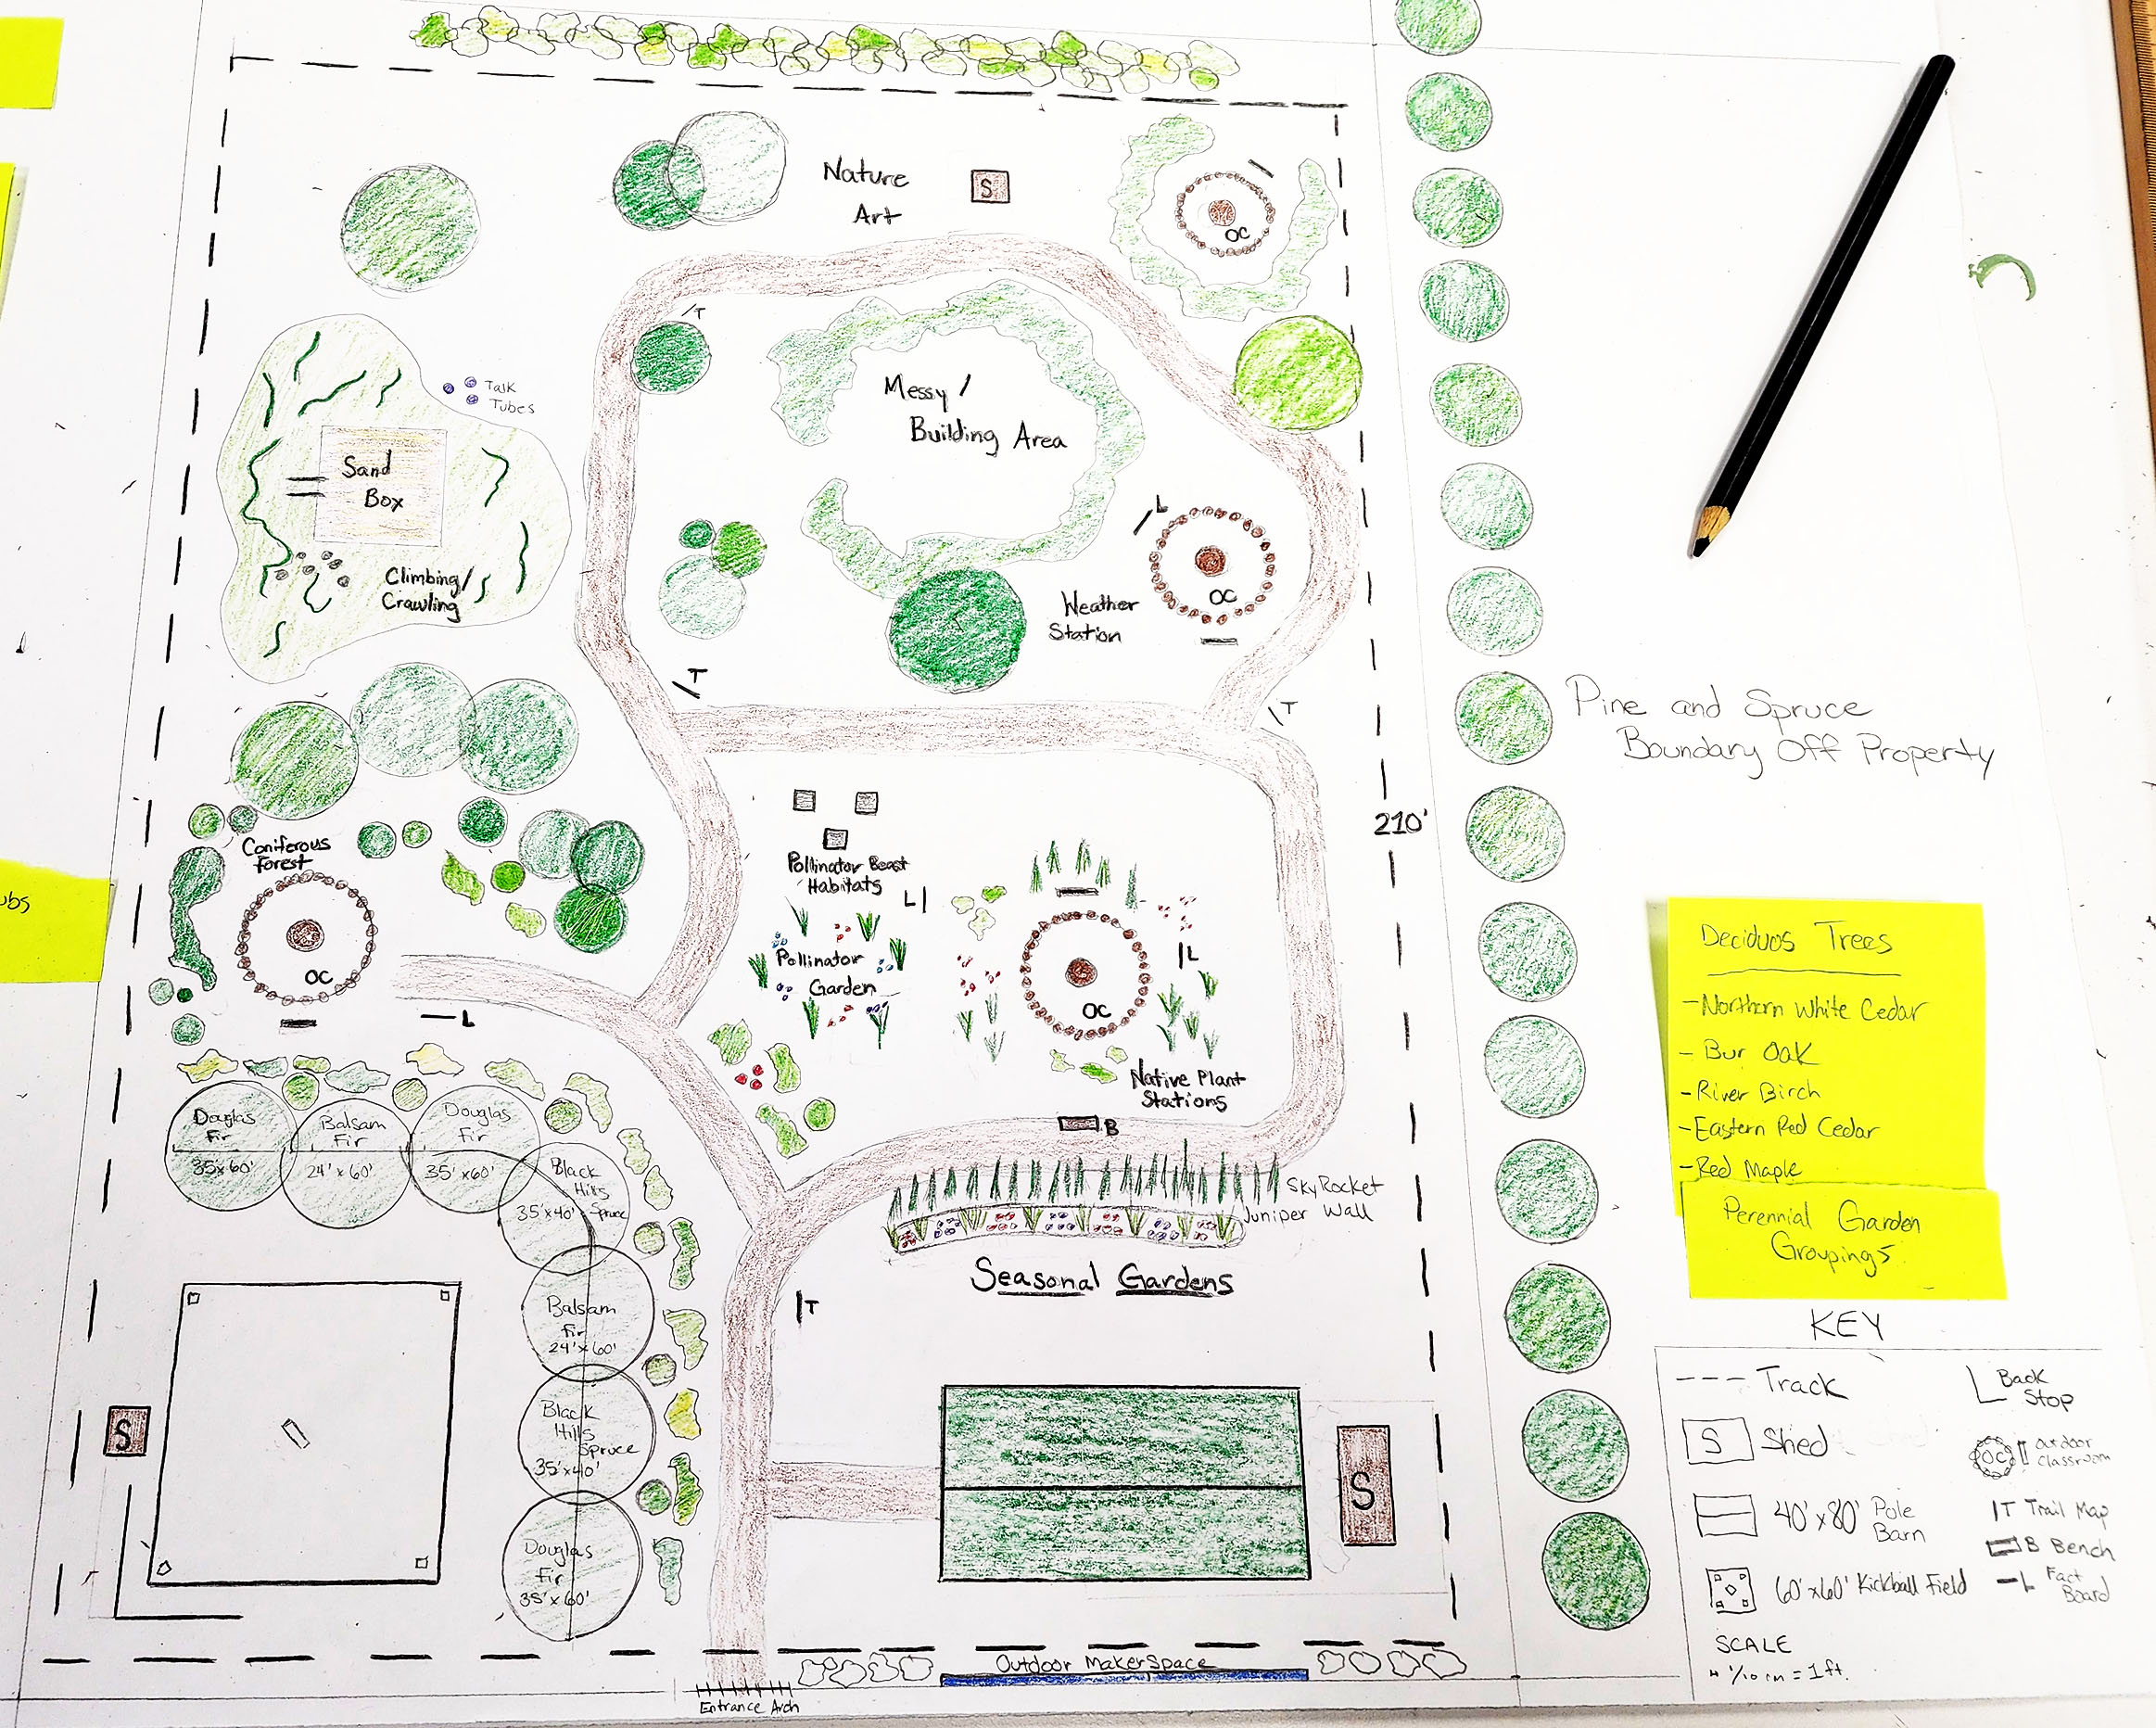 Nature
Art
S
OC
T
Messy /
Building Area
Talk
Tubes
Sand
Box
Climbing/
Crawling
L
OC
Weather
Station
T
T
Pine and Spruce
Boundary Off Property
210'
Coniferous
Forest
OC
L
Pollinator Beast
Habitats
L
Pollinator
Garden
L
OC
Native Plant
Stations
B
ubs
Deciduos Trees
-Northern White Cedar
- Bur Oak
-River Birch
-Eastern Red Cedar
-Red Maple
Perennial Garden
Groupings
Douglas
Fir
35'x60'
Balsam
Fir
24'x60'
Douglas
Fir
35'x60'
Black
Hills
Spruce
35'x40'
Balsam
Fir
24'x60'
Black
Hills
Spruce
35'x40'
Douglas
Fir
35'x60'
SkyRocket
Juniper Wall
Seasonal Gardens
T
S
S
Outdoor MakerSpace
Entrance Arch
KEY
Track
S Shed
40'x80' Pole
Barn
60'x60' Kickball Field
Back
Stop
OC Outdoor
Classroom
T Trail Map
B Bench
L Fact
Board
SCALE
1/10 in = 1ft.